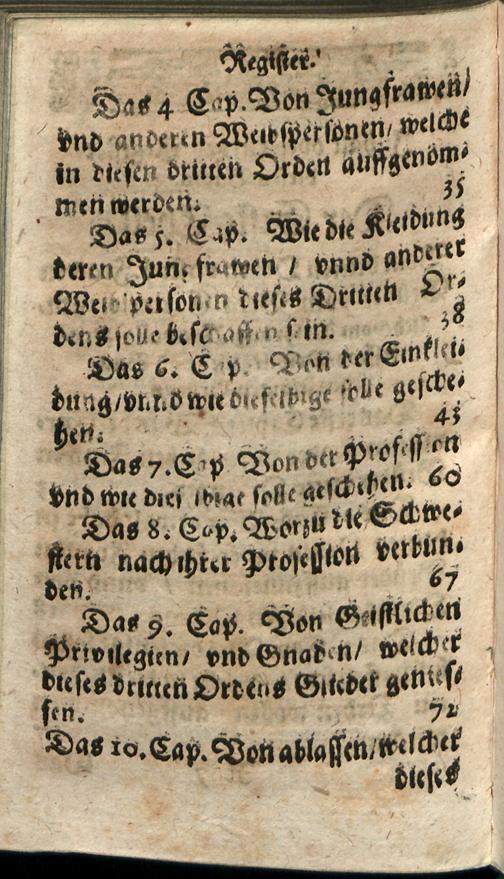 Register.
Das 4 Cap. Von Jungfrawen/
vnd anderen Weibspersonen/ welche
in diesen dritten Orden auffgenom⸗
men werden. 35
Das 5. Cap. Wie die Kleidung
deren Jungfrawen / vnnd anderer
Weibspersonen dieses Dritten Or⸗
dens solle beschaffen sein. 38
Das 6. Cap. Von der Einklei⸗
dung/vnnd wie dieselbige solle gesche⸗
hen. 43
Das 7. Cap Von der Profession
vnd wie dieselbige solle geschehen. 60
Das 8. Cap. Worzu die Schwe⸗
stern nach ihrer Profession verbun⸗
den. 67
Das 9. Cap. Von Geistlichen
Privilegien/ vnd Gnaden/ welcher
dieses dritten Ordens Glieder genies⸗
sen. 72
Das 10. Cap. Von ablassen/welcher
dieses